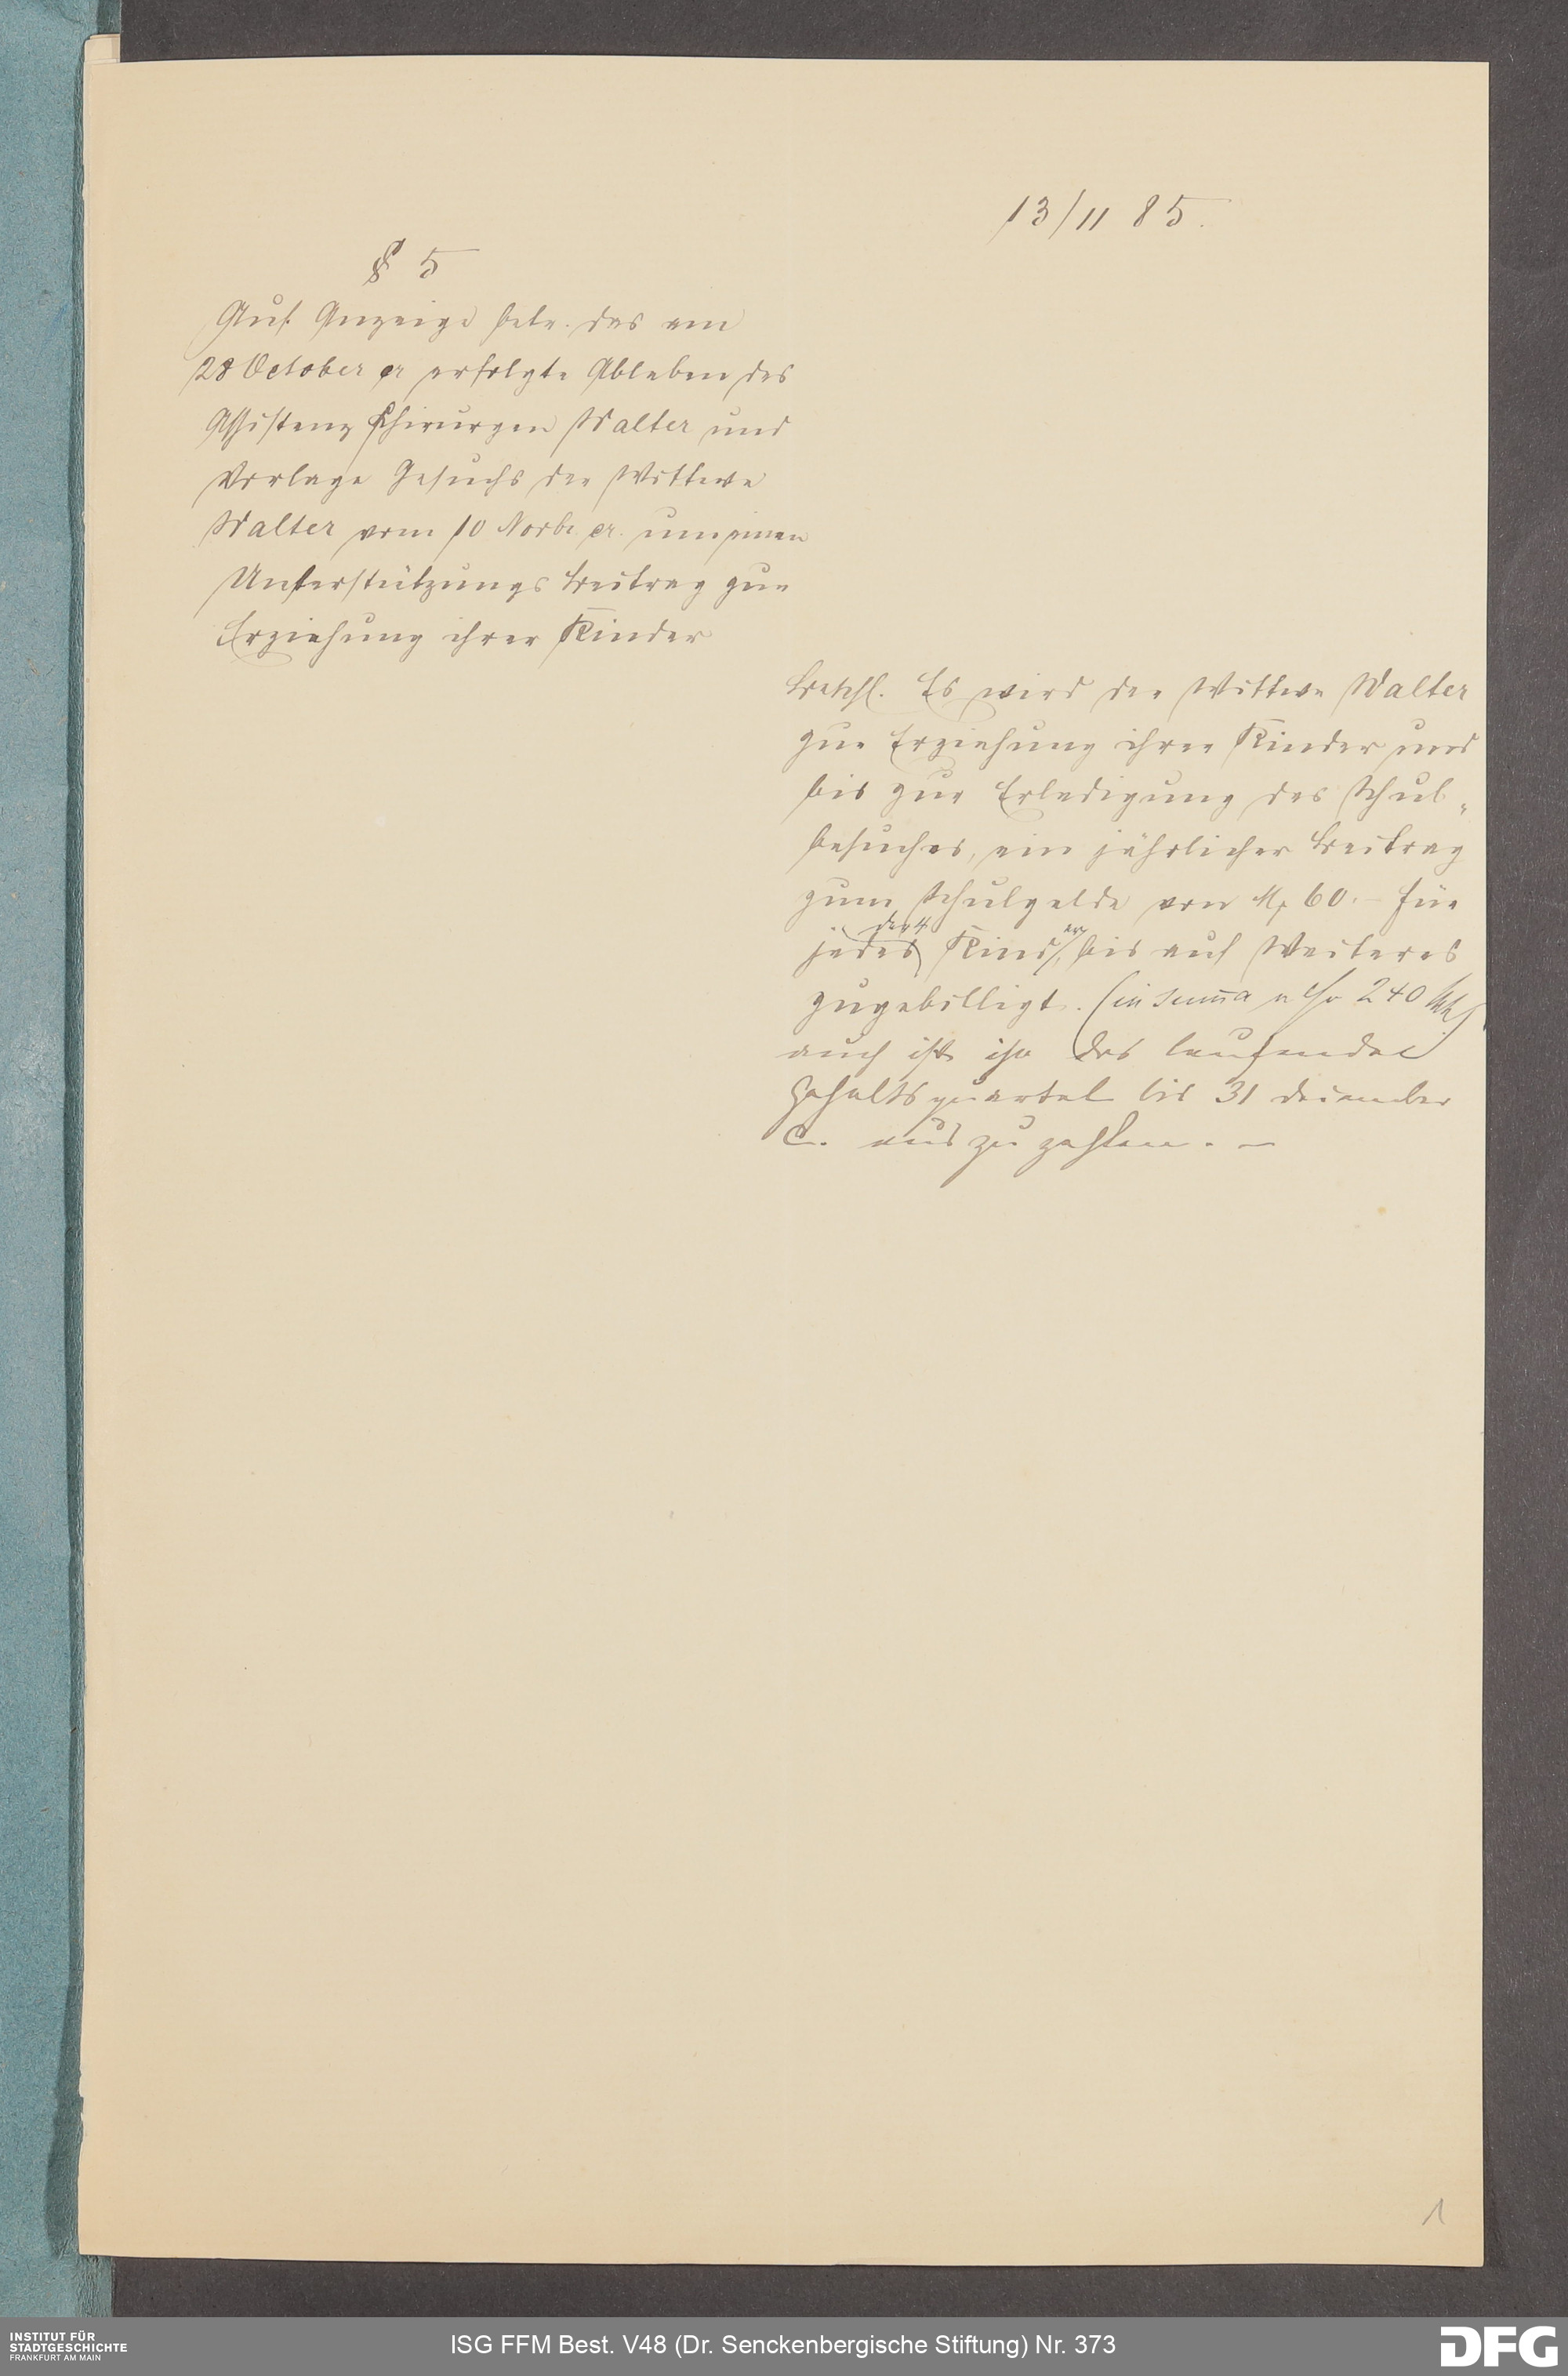 13/11 85.
§ 5
Auf Anzeige betr. das am
28 October cr erfolgte Ableben des
Assistenz Chirurgen Walter und
Vorlage Gesuchs der Wittwe
Walter vom 10 Novbr. cr. um einen
Unterstützungs Beitrag zur
Erziehung ihrer Kinder
Beschl. Es wird der Wittwe Walter
zur Erziehung ihrer Kinder und
bis zur Erledigung des Schul-
besuches, ein jährlicher Beitrag
zum Schulgelde von M 60.– für
der 4 er
jedes Kind, bis auf Weiteres
zugebilligt. (in Summa also 240 Mk)
auch ist ihr das laufende
Gehaltsquartal bis 31 December
c. auszuzahlen. –
1
INSTITUT FÜR
STADTGESCHICHTE
FRANKFURT AM MAIN
ISG FFM Best. V48 (Dr. Senckenbergische Stiftung) Nr. 373
DFG